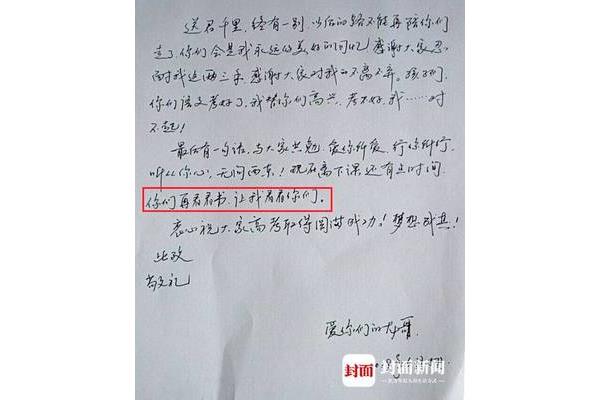 送君千里，终有一别，以后的路不能再陪你们
走了，你们会是我永远的美好的回忆，感谢大家忍
耐我这两三年，感谢大家对我的不离不弃。孩子们，
你们语文考好了，我替你们高兴，考不好，我……对
不起！
最后有一句话，与大家共勉，爱你所爱，行你所行，
听从你心，无问西东！现在离下课，还有点时间，
你们再看看书，让我看看你们。
衷心祝大家高考取得圆满成功！梦想成真！
此致
敬礼
爱你们的
封面 封面新闻